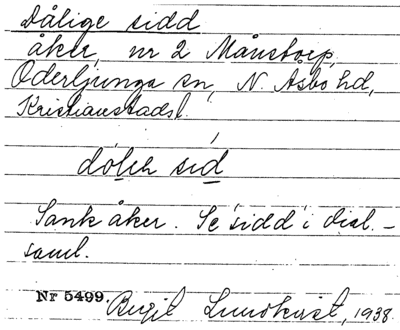 Dålige sidd
åker, nr 2 Månstorp,
Oderljunga sn, N. Åsbo hd,
Kristianstads l.
dólıh síd
Sank åker. Se 'sidd' i dial.-
saml.
Nr 5499. Birgit Lundkvist, 1938.